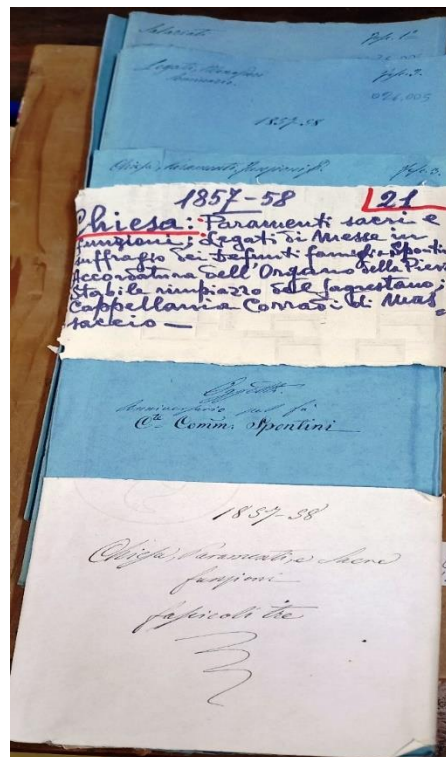 Salariati
Fasc. 1º
Legati,
Anniversario.
Fasc. 2.
1857-58
Chiesa, Paramenti, funzioni &.
Fasc. 3.
1857-58
21
Chiesa: Paramenti sacri e
funzioni; Legati di Messe in
suffragio dei Defunti famiglia Spontini
Accordatura dell'Organo della Pieve
Stabile rimpiazzo del sagrestano;
Cappellania Corradi di Mas-
saccio —
Oggetto
Anniversario pel fu
Cte Comm: Spontini
1857-58
Chiesa, Paramenti, e Sacre
funzioni
fascicoli tre